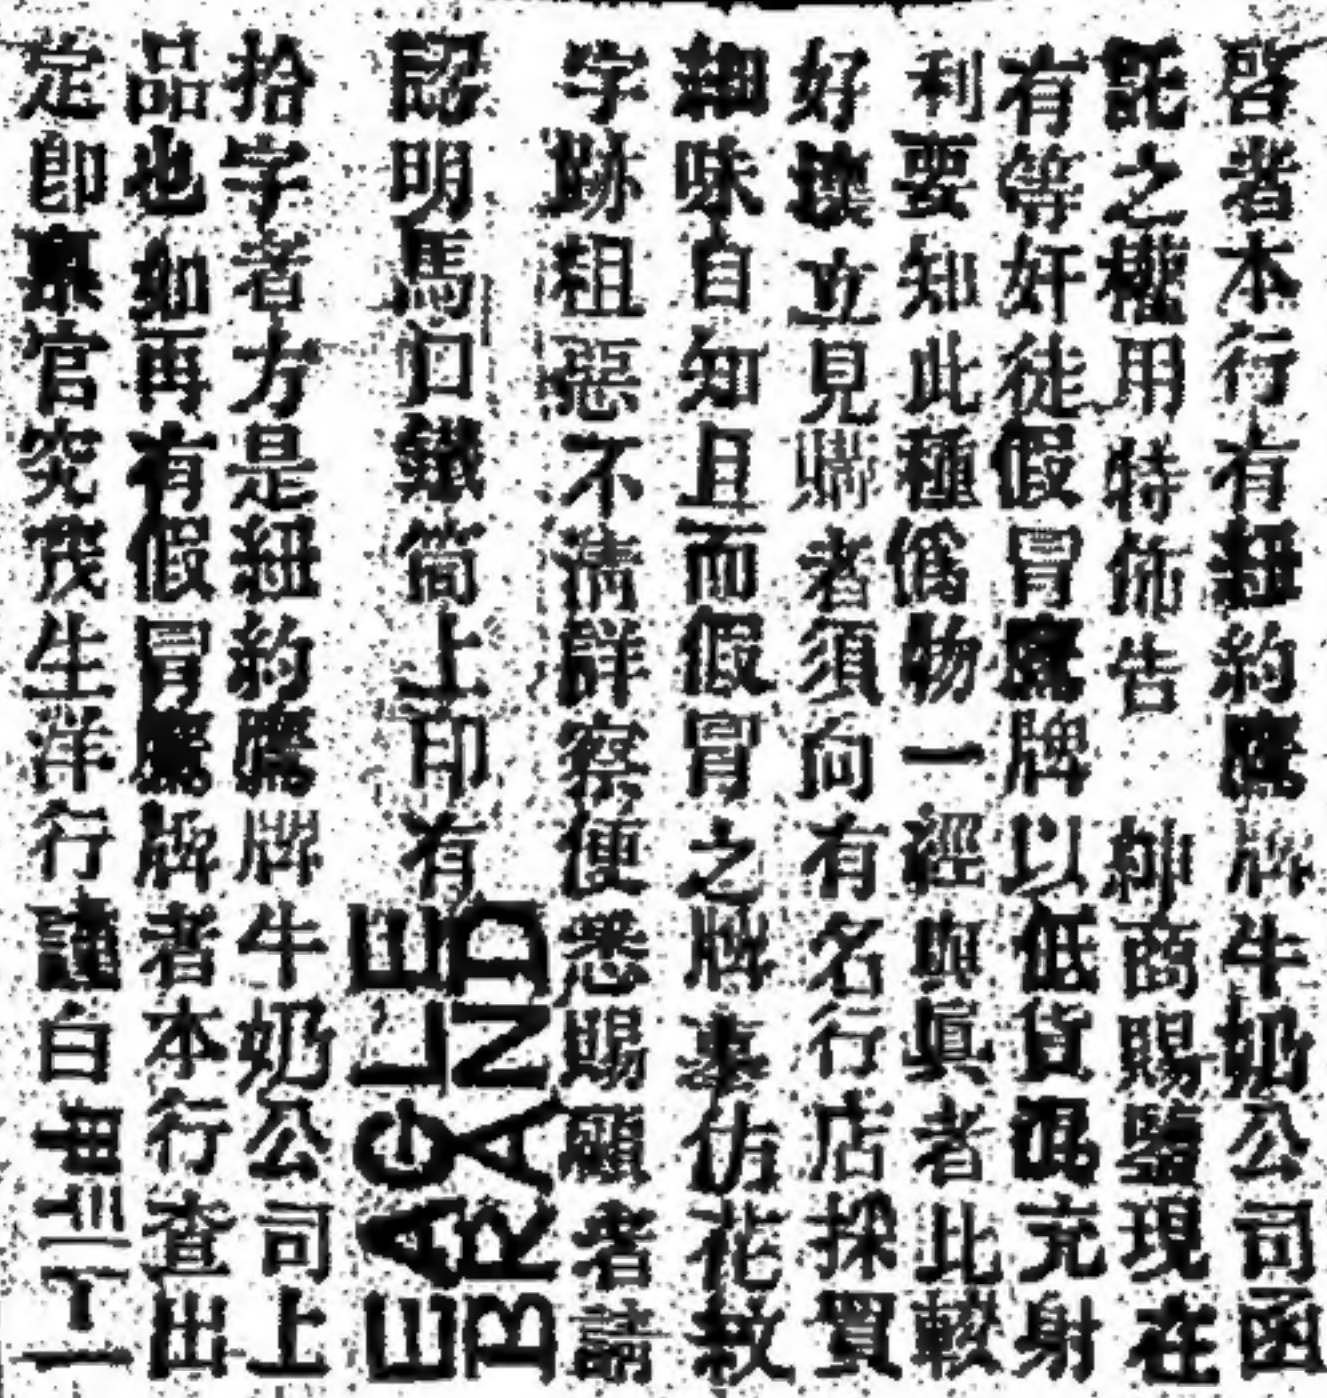 啓者本行有紐約鷹牌牛奶公司函
託之權用特佈告　紳商賜鑒現在
有等奸徒假冒鷹牌以低貨混充射
利要知此種僞物一經與眞者比較
好壞立見購者須向有名行店採買
細味自知且而假冒之牌奉仿花紋
字跡粗惡不清詳察便悉賜顧者請
認明馬口鐵筒上印有 EAGLE BRAND
拾字者方是紐約鷹牌牛奶公司上
品也如再有假冒鷹牌者本行查出
定即稟官究茂生洋行謹白